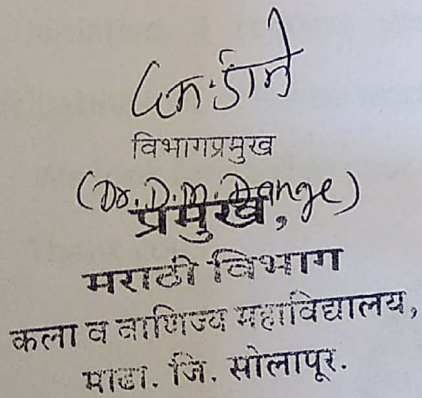 विभागप्रमुख
(Dr. D. M. Dange)
प्रमुख,
मराठी विभाग
कला व वाणिज्य महाविद्यालय,
माढा. जि. सोलापूर.